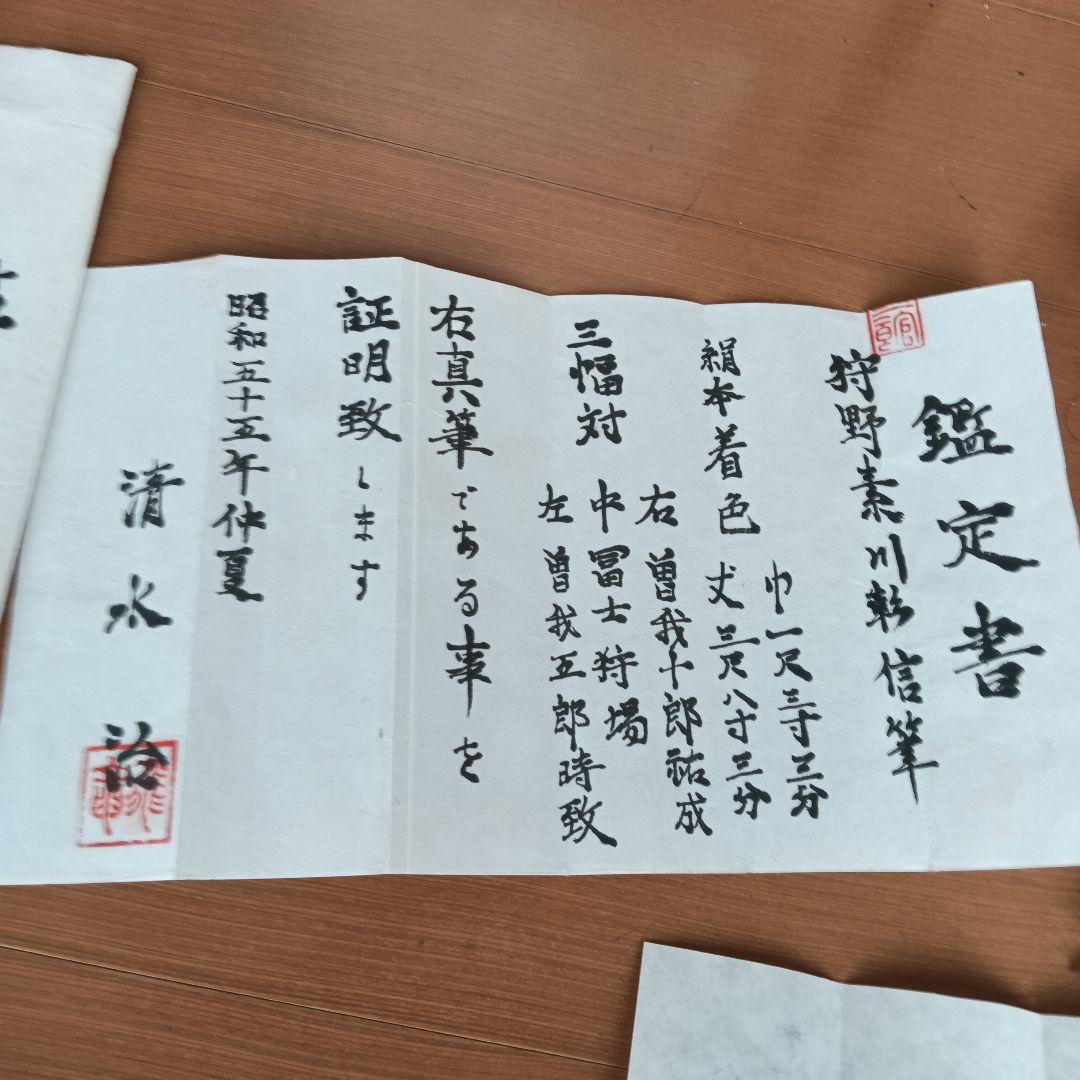 鑑定書
狩野素川彰信筆
絹本着色
巾一尺三寸三分
丈三尺八寸三分
三幅対
右 曽我十郎祐成
中 冨士狩場
左 曽我五郎時致
右真筆である事を
証明致します
昭和五十五年仲夏
清水治